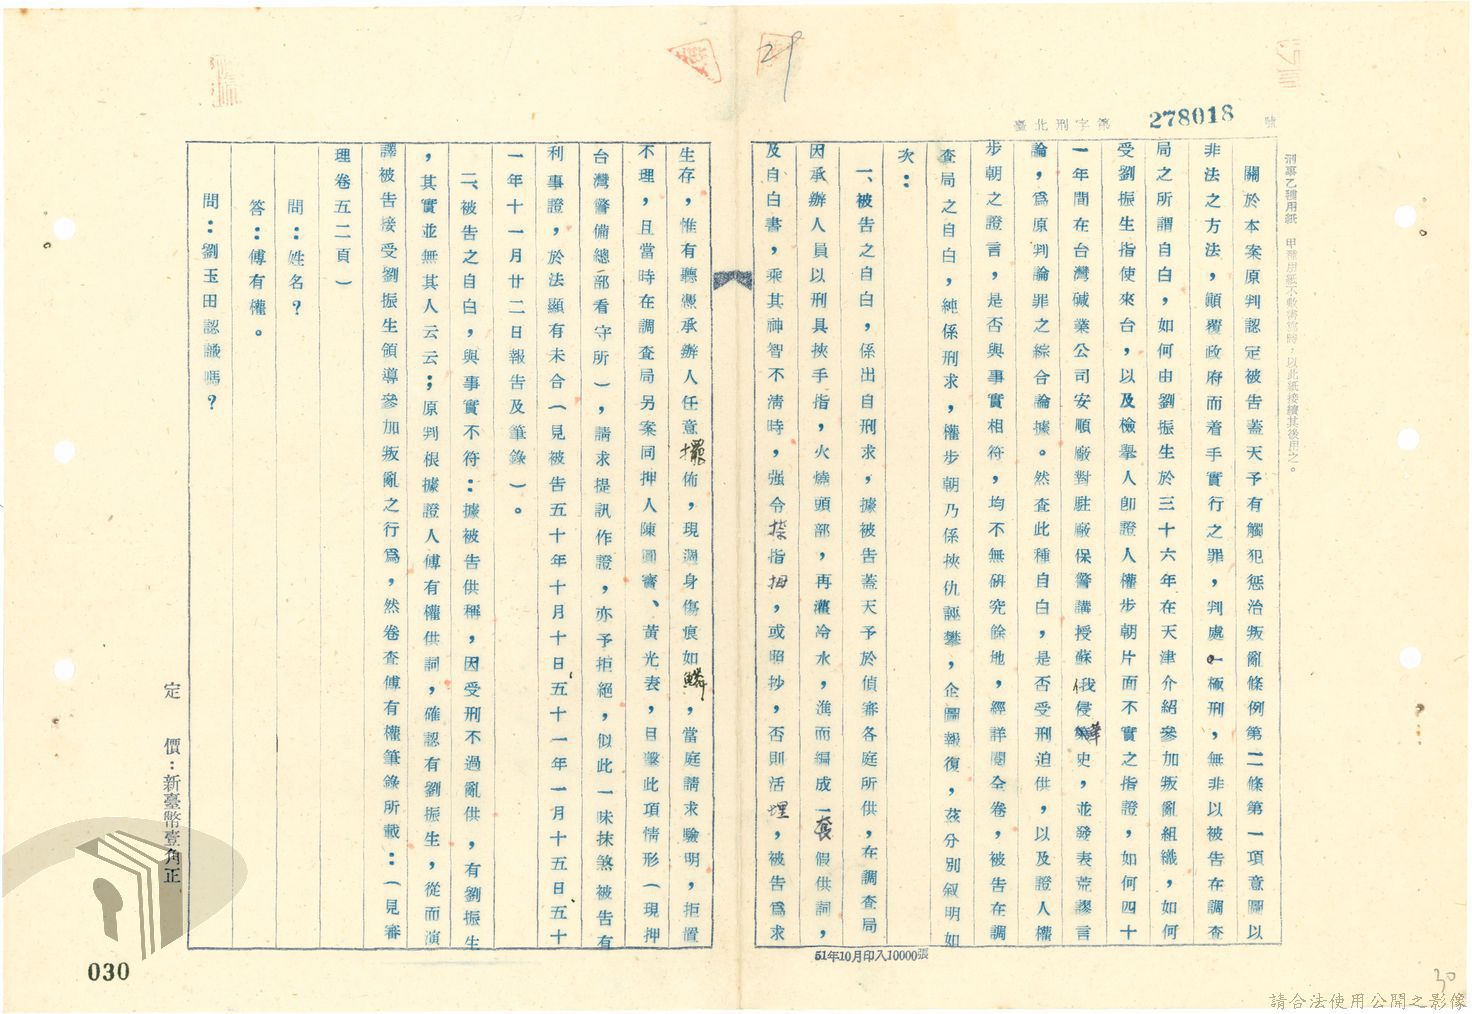 29
臺北刑字第 278018 號
刑事乙種用紙　甲種用紙不敷書寫時，以此紙接續其後用之。
關於本案原判認定被告蓋天予有觸犯惩治叛亂條例第二條第一項意圖以
非法之方法，顚覆政府而着手實行之罪，判處極刑，無非以被告在調查
局之所謂自白，如何由劉振生於三十六年在天津介紹參加叛亂組織，如何
受劉振生指使來台，以及檢擧人卽證人權步朝片面不實之指證，如何四十
一年間在台灣碱業公司安順廠對駐廠保警講授蘇俄侵華史，並發表荒謬言
論，爲原判論罪之綜合論據。然查此種自白，是否受刑迫供，以及證人權
步朝之證言，是否與事實相符，均不無硏究餘地，經詳閱全卷，被告在調
查局之自白，純係刑求，權步朝乃係挾仇誣攀，企圖報復，茲分別叙明如
次：
一、被告之自白，係出自刑求，據被告蓋天予於偵審各庭所供，在調查局
因承辦人員以刑具挾手指，火燒頭部，再灌冷水，進而編成一套假供詞，
及自白書，乘其神智不淸時，强令捺指拇，或照抄，否則活埋，被告爲求
生存，惟有聽憑承辦人任意擺佈，現週身傷痕如鱗，當庭請求驗明，拒置
不理，且當時在調查局另案同押人陳圓寶、黃光表，目擊此項情形（現押
台灣警備總部看守所），請求提訊作證，亦予拒絕，似此一味抹煞被告有
利事證，於法顯有未合（見被告五十年十月十日、五十一年一月十五日五十
一年十一月廿二日報告及筆錄）。
二、被告之自白，與事實不符：據被告供稱，因受刑不過亂供，有劉振生
，其實並無其人云云；原判根據證人傅有權供詞，確認有劉振生，從而演
譯被告接受劉振生領導參加叛亂之行爲，然卷查傅有權筆錄所載：（見審
理卷五二頁）
問：姓名？
答：傅有權。
問：劉玉田認識嗎？
定　價：新臺幣壹角正
51年10月印入10000張
030
30
請合法使用公開之影像